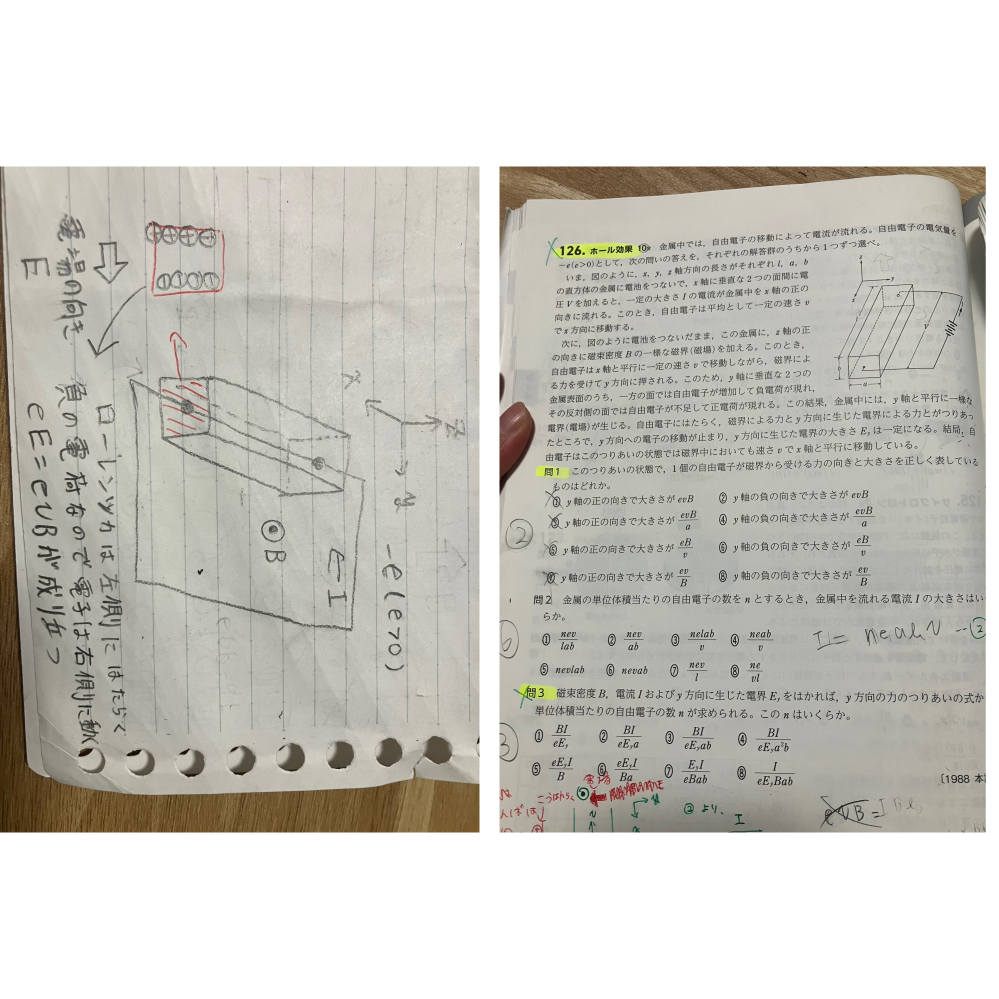 z
x
y
B
E-I
-e(e>0)
⊕⊕⊕⊕
⊖⊖⊖⊖
電場の向き
E
ローレンツ力は左側にはたらく
負の電荷なので電子は右側に動く
eE=evBが成り立つ
126. ホール効果 10分 金属中では,自由電子の移動によって電流が流れる。自由電子の電気量を
-e(e>0)として,次の問いの答えを,それぞれの解答群のうちから1つずつ選べ。
いま,図のように,x,y,z軸方向の長さがそれぞれ l,a,b
の直方体の金属に電池をつないで,x軸に垂直な2つの面間に電
圧Vを加えると,一定の大きさIの電流が金属中をx軸の正の
向きに流れる。このとき,自由電子は平均として一定の速さv
でx方向に移動する。
次に,図のように電池をつないだまま,この金属に,z軸の正
の向きに磁束密度Bの一様な磁界(磁場)を加える。このとき,
自由電子はx軸と平行に一定の速さvで移動しながら,磁界によ
る力を受けてy方向に押される。このため,y軸に垂直な2つの
金属表面のうち,一方の面では自由電子が増加して負電荷が現れ,
その反対側の面では自由電子が不足して正電荷が現れる。この結果,金属中には,y軸と平行に一様な
電界(電場)が生じる。自由電子にはたらく,磁界による力とy方向に生じた電界による力とがつりあっ
たところで,y方向への電子の移動が止まり,y方向に生じた電界の大きさEyは一定になる。結局,自
由電子はこのつりあいの状態では磁界中においても速さvでx軸と平行に移動している。
z
y
x
V
l
b
a
問1 このつりあいの状態で,1個の自由電子が磁界から受ける力の向きと大きさを正しく表している
ものはどれか。
① y軸の正の向きで大きさが evB ② y軸の負の向きで大きさが evB
③ y軸の正の向きで大きさが evB/a ④ y軸の負の向きで大きさが evB/a
⑤ y軸の正の向きで大きさが eB/v ⑥ y軸の負の向きで大きさが eB/v
⑦ y軸の正の向きで大きさが ev/B ⑧ y軸の負の向きで大きさが ev/B
②
問2 金属の単位体積当たりの自由電子の数をnとするとき,金属中を流れる電流Iの大きさはい
らか。
① nev/lab ② nev/ab ③ nelab/v ④ neab/v
⑤ nevlab ⑥ nevab ⑦ nev/l ⑧ ne/vl
⑥
I = neabv --②
問3 磁束密度B,電流Iおよびy方向に生じた電界Eyをはかれば,y方向の力のつりあいの式か
単位体積当たりの自由電子の数nが求められる。このnはいくらか。
① BI/eEy ② BI/eEya ③ BI/eEyab ④ BI/eEya²b
⑤ eEyI/B ⑥ eEyI/Ba ⑦ EyI/eBab ⑧ I/eEyBab
③
〔1988 本
②より,
I
evB =